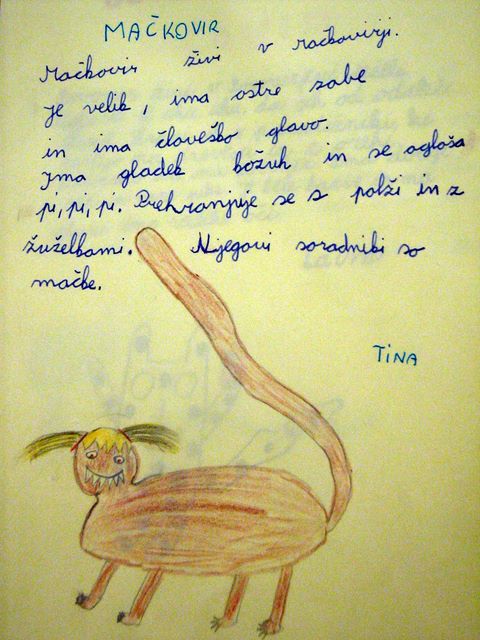 MAČKOVIR
Mačkovir živi v mačkovirji.
Je velik, ima ostre zobe
in ima človeško glavo.
Ima gladek kožuh in se oglaša
pi, pi, pi. Prehranjuje se s polži in z
žuželkami. Njegovi sorodniki so
mačke.
TINA